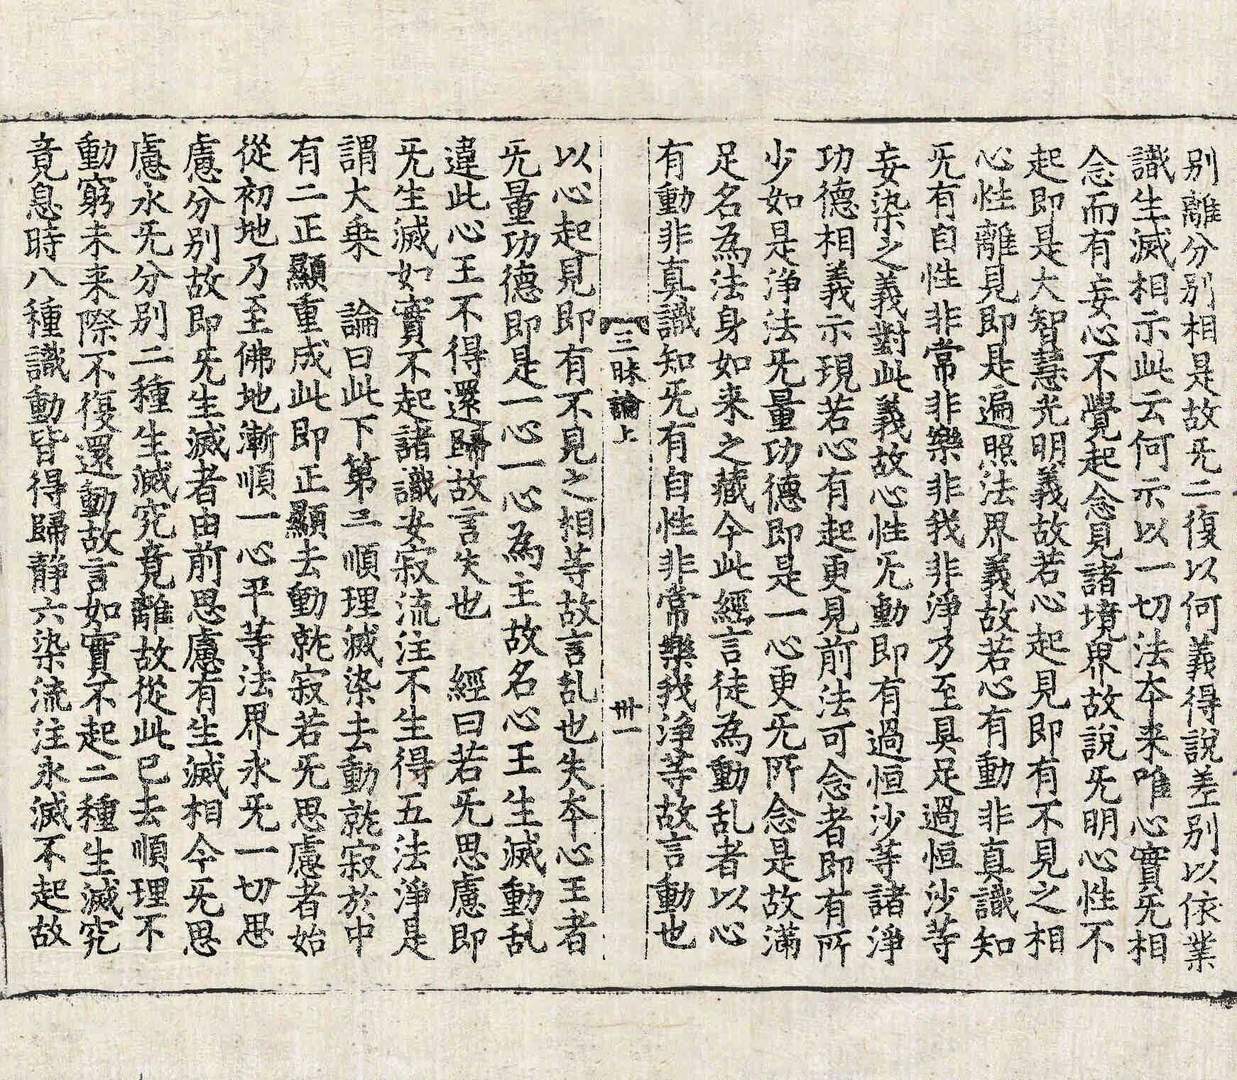 别離分别相是故旡二復以何義得說差别以依業
識生滅相示此云何示以一切法夲来唯心實旡相
念而有妄心不覺起念見諸境界故說旡明心性不
起即是大智慧光明義故若心起見即有不見之相
心性離見即是遍照法界義故若心有動非真識知
旡有自性非常非樂非我非淨乃至具足過恒沙等
妄染之義對此義故心性旡動即有過恒沙等諸淨
功德相義示現若心有起更見前法可念者即有所
少如是净法旡量功德即是一心更旡所念是故滿
足名為法身如来之藏今此經言徒為動乱者以心
有動非真識知旡有自性非常樂我净等故言動也
三昧論上 卅一
以心起見即有不見之相等故言乱也失夲心王者
旡量功德即是一心一心為主故名心王生滅動乱
違此心王不得還歸故言失也 經曰若旡思慮即
旡生滅如實不起諸識安寂流注不生得五法淨是
謂大乗 論曰此下第三順理滅染去動就寂於中
有二正顯重成此即正顯去動就寂若旡思慮者始
從初地乃至佛地漸順一心平等法界永旡一切思
慮分别故即旡生滅者由前思慮有生滅相今旡思
慮永旡分别二種生滅究竟離故從此已去順理不
動窮未来際不復還動故言如實不起二種生滅究
竟息時八種識動皆得歸静六染流注永滅不起故